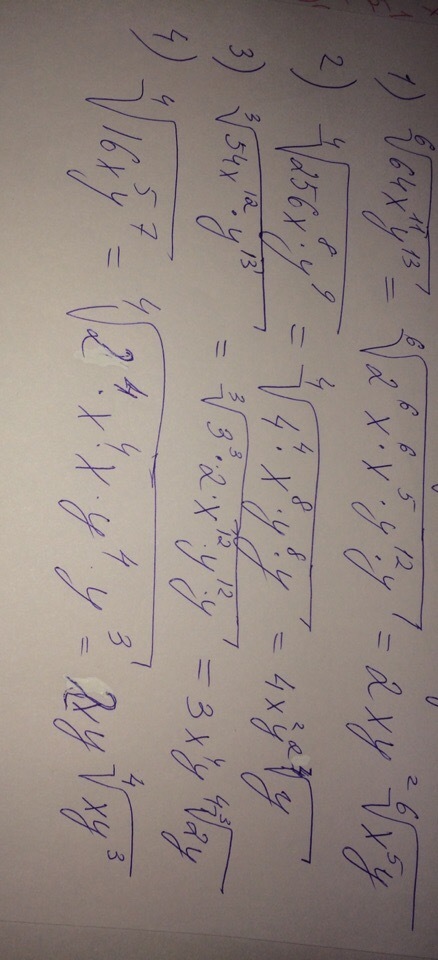 1) ⁶√(64x¹¹y¹³) = ⁶√(2⁶x⁶·x⁵·y¹²·y) = 2xy² ⁶√(x⁵y)
2) ⁴√(256x⁸·y⁹) = ⁴√(4⁴·x⁸·y⁸·y) = 4x²y² ⁴√y
3) ³√(54x¹²·y¹³) = ³√(3³·2·x¹²·y¹²·y) = 3x⁴y⁴ ³√(2y)
4) ⁴√(16x⁵y⁷) = ⁴√(2⁴·x⁴x·y⁴·y³) = 2xy ⁴√(xy³)